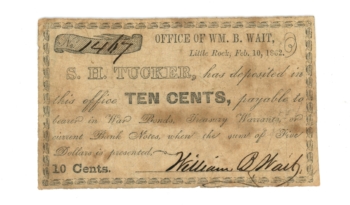 No. 1467
OFFICE OF WM. B. WAIT,
Little Rock, Feb. 10, 1862.
S. H. TUCKER, has deposited in
this office TEN CENTS, payable to
bearer in War Bonds, Treasury Warrants, or
current Bank Notes, when the sum of Five
Dollars is presented.
10 Cents. William B. Wait